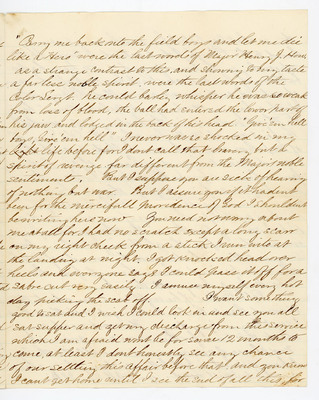 "Carry me back into the field boys and let me die
like a Hero" were the last words of Major Henry J. How
as a strange contrast to this, and showing to my taste
a far less noble spirit, were the last words of the
Color Serg't. he could barely whisper he was so weak
from loss of blood, the ball had entered the lower part of
his jaw and lodged in the back of his head "Give 'em hell
boys Give 'em hell" I never was so shocked in my
life before for I dont call that bravery but a
spirit of revenge far different from the Major's noble
sentiments. But I suppose you are sick of hearing
of nothing but war. But I assure you if it hadn't
been for the mercifull Providence of God I shouldn't
be writing here now You need not worry about
me at all for I had no scratch except a long scar
on my right cheek from a stick I run into at
the landing at night. I got knocked head over
heels and every one says I could pass it off for a
sabre cut very easily I amuse myself every hot
day picking the scab off. I want something
good to eat and I wish I could look in and see you all
eat supper and get my discharge from this service
which I am afraid wont be for some 12 months to
come, at least I dont honestly see any chance
of our settling this affair before that, and you know
I cant get home until I see the end of all this, for